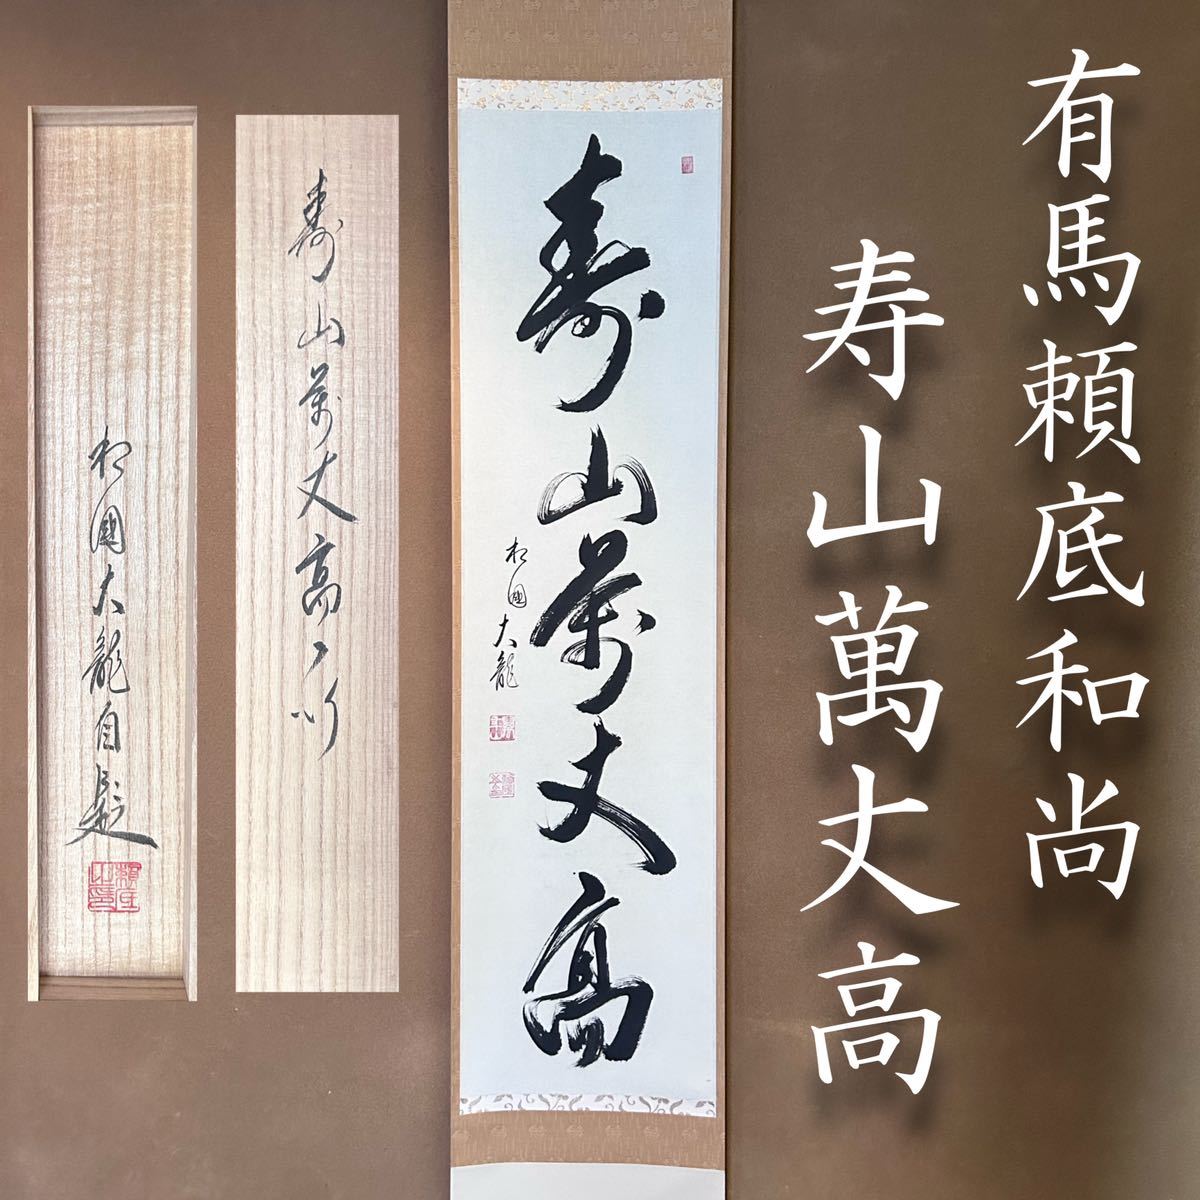 有馬頼底和尚
寿山萬丈高
寿山萬丈高
相国大龍
寿山萬丈高 一行
相國大龍自題
頼底